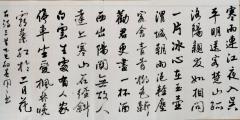 寒雨連江夜入吴
平明送客楚山孤
洛陽親友如相問
一片冰心在玉壺
渭城朝雨浥輕塵
客舍青青柳色新
勸君更盡一杯酒
西出陽關無故人
遠上寒山石徑斜
白雲生處有人家
停車坐愛楓林晚
霜葉紅於二月花
古詩三首